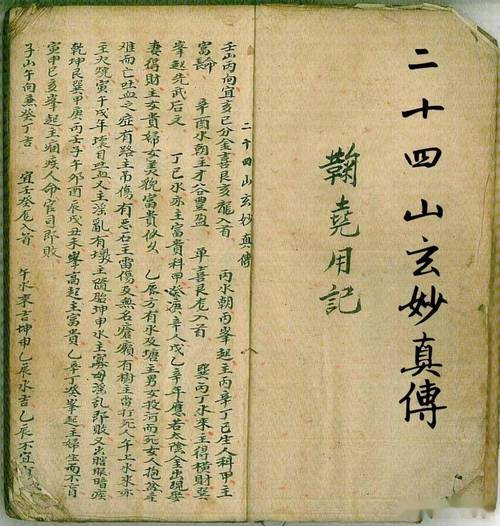 二十四山玄妙真傳
鞠堯用記
二十四山玄妙真傳
壬山丙向宜亥巳分金喜艮亥龍入首 丙水朝丙峯起主丙辛丁巳生人科甲主
富長命 辛酉水朝主才谷豐盈 單喜艮龙入首 巽丙丁水來主得横財巽
峯起先武后文 丁巳水亦主富貴科甲癸滇辛人戊乙辛年應若太陰金出現娶
妻得財主女貴婦女美貌富貴似久 乙辰方有水及塘主男女投河而死女人抱於産
难而亡吐血之症有路主吊傷有惡石主雷傷及無名瘡癩有樹主雷打死人午上水來亦
主火疏寅午戌年壞目血又主淫亂有壞主隨胎坤申水主寡母淫乱即敗又出膛眼暗疾
乾坤艮巽甲庚丙壬子午卯酉辰戌丑未峯高起主富貴乙辛丁癸峯起主婦生而不育
寅甲巳亥峯起主痼疾人命官司即敗
子山午向兼癸丁吉 宜壬癸龙入首 午水來吉坤申乙辰水吉乙辰不宜